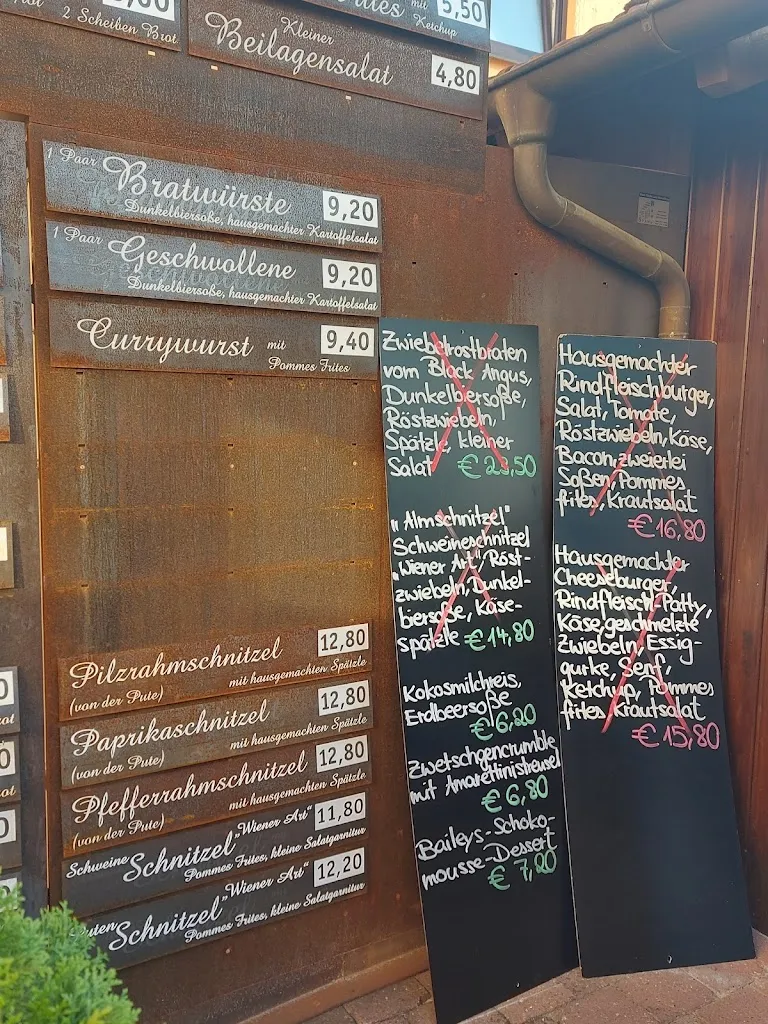 2 Scheiben Brot
mit 5,50
Ketchup
Kleiner
Beilagensalat 4,80
1 Paar Bratwürste 9,20
Dunkelbiersoße, hausgemachter Kartoffelsalat
1 Paar Geschwollene 9,20
Dunkelbiersoße, hausgemachter Kartoffelsalat
Currywurst mit 9,40
Pommes Frites
Pilzrahmschnitzel 12,80
(von der Pute) mit hausgemachten Spätzle
Paprikaschnitzel 12,80
(von der Pute) mit hausgemachten Spätzle
Pfefferrahmschnitzel 12,80
(von der Pute) mit hausgemachten Spätzle
Schweine Schnitzel "Wiener Art" 11,80
Pommes Frites, kleine Salatgarnitur
Schnitzel "Wiener Art" 12,20
Pommes Frites, kleine Salatgarnitur
Zwiebelrostbraten
vom Black Angus,
Dunkelbiersoße,
Röstzwiebeln,
Spätzle, kleiner
Salat € 23,50
„Almschnitzel"
Schweineschnitzel
„Wiener Art", Röst-
zwiebeln, Dunkel-
biersoße, Käse-
spätzle € 14,80
Kokosmilchreis,
Erdbeersoße
€ 6,20
Zwetschgencrumble
mit Amarettinistreusel
€ 6,80
Baileys-Schoko-
mousse-Dessert
€ 7,20
Hausgemachter
Rindfleischburger,
Salat, Tomate,
Röstzwiebeln, Käse,
Bacon, zweierlei
Soßen, Pommes
frites, Krautsalat
€ 16,80
Hausgemachter
Cheeseburger,
Rindfleisch-Patty,
Käse, geschmelzte
Zwiebeln, Essig-
gurke, Senf,
Ketchup, Pommes
frites, Krautsalat
€ 15,80